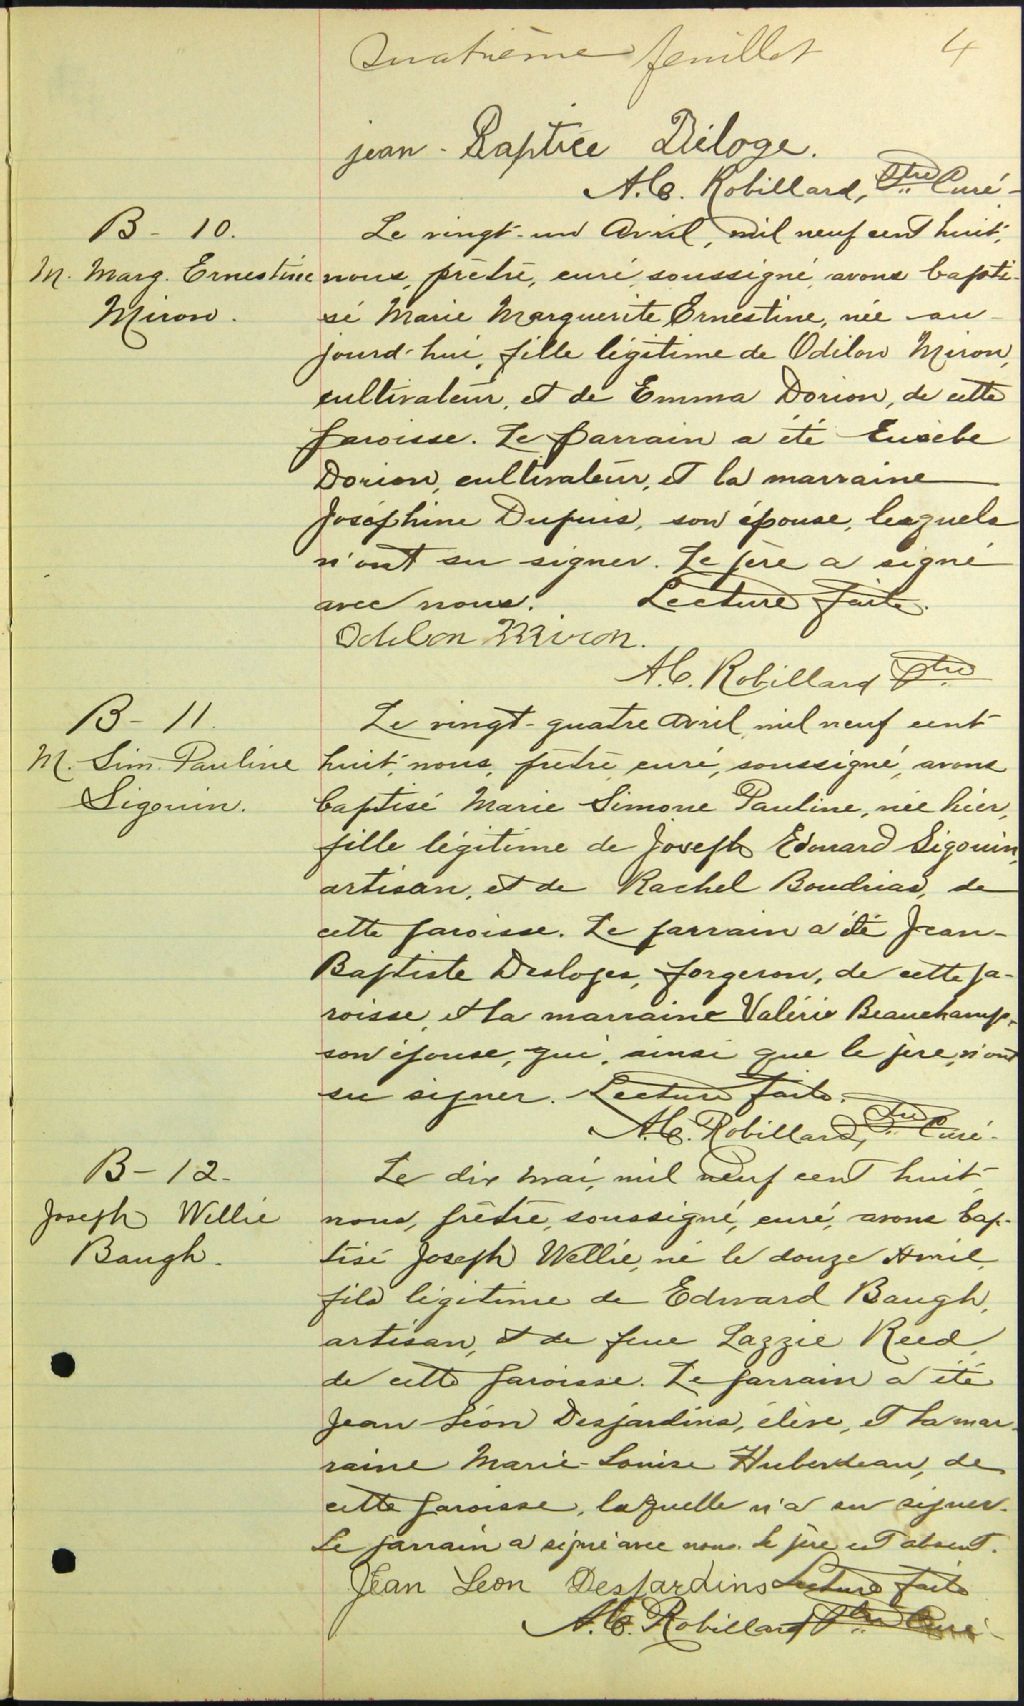 Quatrième feuillet 4
jean-Baptice Déloge.
A.C. Robillard, Ptre Curé-
B - 10.
M. Marg. Ernestine
Miron.
Le vingt-un Avril, mil neuf cent huit,
nous, prêtre, curé, soussigné, avons bapti-
sé Marie Marguerite Ernestine, née au-
jourd'hui, fille légitime de Odilon Miron,
cultivateur, et de Emma Dorion, de cette
paroisse. Le parrain a été Eusèbe
Dorion, cultivateur, et la marraine
Joséphine Dupuis, son épouse, lesquels
n'ont su signer. Le père a signé
avec nous. Lecture faite.
Odilon Miron.
A.C. Robillard Ptre
B - 11.
M. Sim. Pauline
Sigouin.
Le vingt-quatre avril, mil neuf cent
huit, nous, prêtre, curé, soussigné, avons
baptisé Marie Simone Pauline, née hier,
fille légitime de Joseph Edouard Sigouin,
artisan, et de Rachel Boudrias, de
cette paroisse. Le parrain a été Jean-
Baptiste Desloges, forgeron, de cette pa-
roisse, et la marraine Valérie Beauchamp,
son épouse, qui, ainsi que le père, n'ont
su signer. Lecture faite.
A.C. Robillard, Ptre Curé-
B - 12-
Joseph Willie
Baugh.
Le dix mai, mil neuf cent huit,
nous, prêtre, soussigné, curé, avons bap-
tisé Joseph Wellie, né le douze Avril,
fils légitime de Edward Baugh,
artisan, et de feue Lazzie Reed,
de cette paroisse. Le parrain a été
Jean-Léon Desjardins, élève, et la mar-
raine Marie-Louise Huberdeau, de
cette paroisse, laquelle n'a su signer.
Le parrain a signé avec nous. Le père est absent.
Jean Leon DesJardins Lecture faite
A.C. Robillard Ptre Curé-